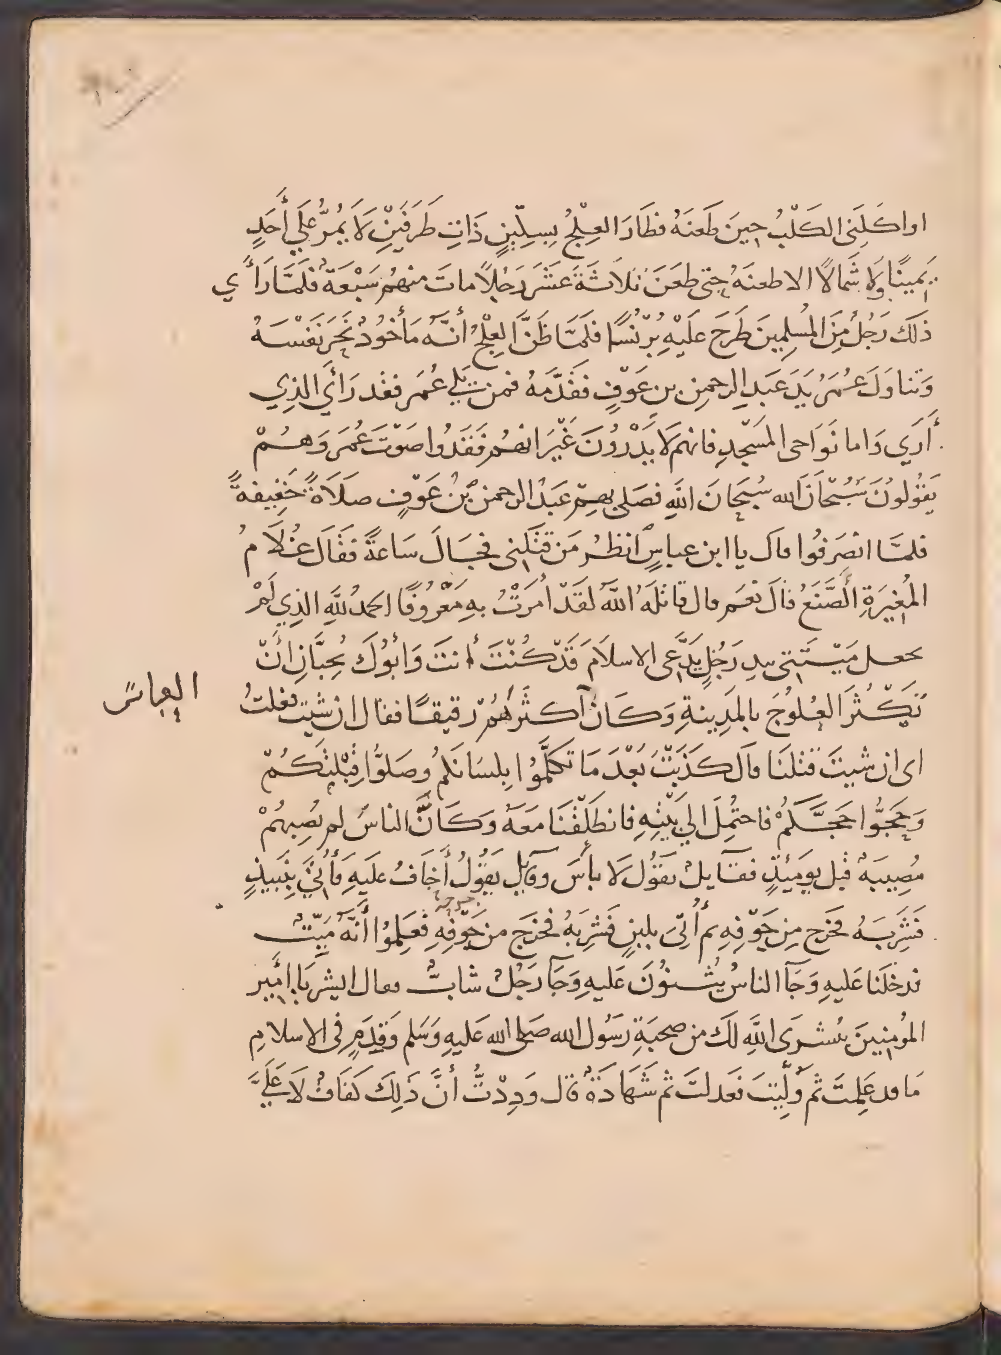 او اكَلَنى الكَلْبُ حِينَ طَعَنَهُ فطَارَ العِلْجُ بِسِكِّينٍ ذَاتِ طَرَفَيْنِ لَا يَمُرُّ عَلَي أَحَدٍ
يَمِينًا وَلَا شَمالًا الا طعنَهُ حتى طعَنَ ثلاثَةَ عَشَرَ رَجُلًا ماتَ منهُم سَبْعَةٌ فلَمَّا رَأَي
ذلكَ رَجُلٌ مِنَ المُسلِمينَ طَرَحَ عَلَيْهِ بُرْنُسًا فلَمَّا ظَنَّ العِلْجُ أنَّهُ مَأخُوذٌ نَحَرَ نَفْسَهُ
وَتَناوَلَ عُمَرُ يَدَ عَبدِ الرحمنِ بنِ عَوفٍ فقَدَّمَهُ فمن يَلِي عُمَرَ فقَد رَأَي الذِي
أَرَي وَاما نَوَاحى المَسْجِدِ فانهم لَا يَدْرُونَ غَيْرَ انهُم فَقَدُوا صَوْتَ عُمَرَ وَهُمْ
يَقُولُونَ سُبْحَانَ الله سُبحَانَ اللَّهِ فصَلى بهِم عَبدُ الرحمنِ بنُ عَوفٍ صلَاةً خَفِيفةً
فلمَّا انصَرَفُوا قال يا ابن عباسٍ انظُر مَن قتَلَنِى فجَالَ سَاعةً فقَال غُلَامُ
المُغِيرَةِ الصَّنَعُ قالَ نعَم قال قاتلَهُ اللَّهُ لقَدْ امَرْتُ بِهِ مَعْرُوفًا الحمدُ للَّهِ الذِي لَمْ
يجعل مَيْتَتِي بيدِ رَجُلٍ يَدَّعى الاسلَامَ قَدْ كُنْتَ أنتَ وَأبُوكَ تُحِبَّانِ أنْ
تَكْثُرَ العُلُوجُ بالمَدِينةِ وَكَانَ أكثَرَهُمْ رقيقًا فقال ان شيت فعلتُ
العباسُ
اى ان شيتَ قتلنَا قال كذَبْتَ بَعْدَ مَا تَكَلَّمُوا بلسَانكم وصَلَّوا قِبْلتَكُمْ
وَحَجُّوا حَجَّكُمْ فاحتُمِلَ الي بَيْتِهِ فانطلَقْنَا مَعَهُ وَكَانَّ الناسَ لم تُصِبهُمْ
مُصِيبَةٌ قبل يومَئِذٍ فقايلٌ يقُولُ لَا باسَ وقايلٌ يقُولُ أَخَافُ عليهِ فَأُتِيَ بِنَبِيذٍ
فشَرِبَهُ فخرج مِن جَوْفِهِ ثم أُتِىَ بلبنٍ فشرِبَهُ فخرَج من جَوْفِهِ فعَلِمُوا أنَّهُ مَيّتٌ
فدخلنَا عليهِ وَجَآ الناسُ يُثنُونَ عَليهِ وَجَآ رَجُلٌ شابٌّ فقال ابشر يا امير
المُومِنِينَ ببُشرَى اللَّهِ لكَ من صحبَةِ رَسُول الله صَلى الله عَليهِ وَسَلم وَقِدَمٍ فى الاسلَامِ
مَا قد عَلِمتَ ثُم وُلِّيتَ فعَدلتَ ثم شهَادَةٌ قال وَدِدْتُّ أنَّ ذَلِكَ كفَافٌ لَا عَلَيَّ